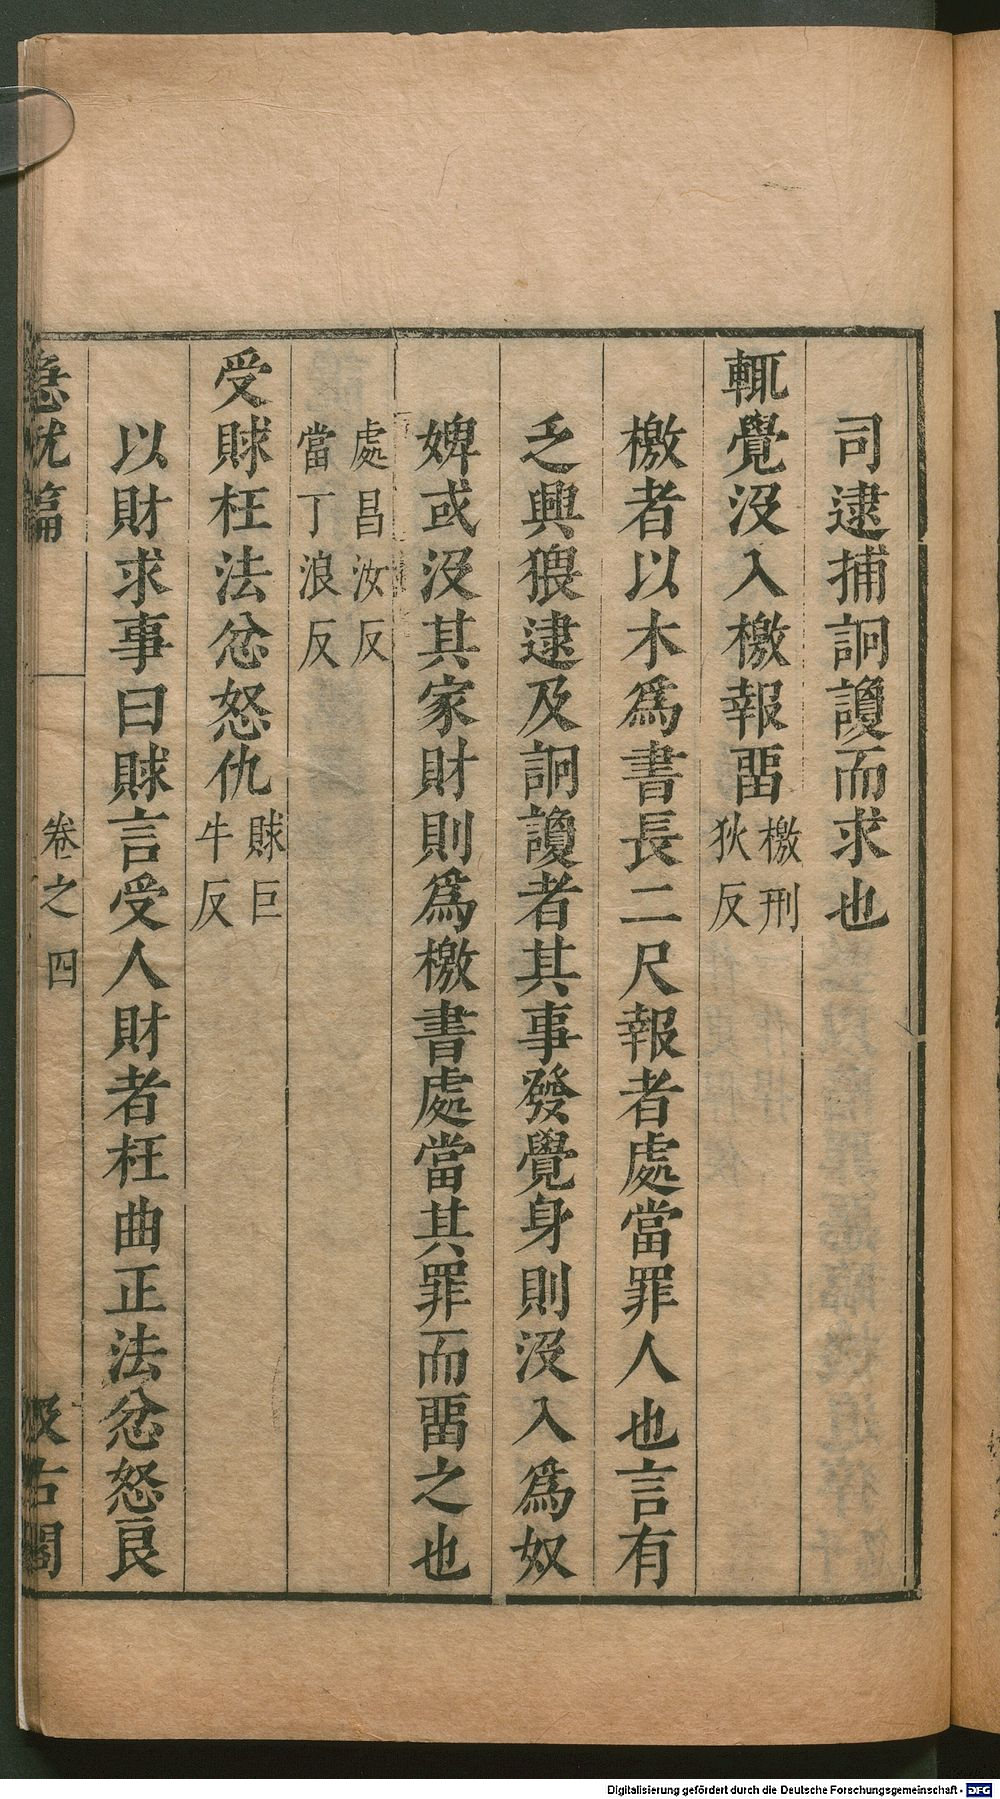 司逮捕詗讂而求也
輒覺沒入檄報畱檄刑狄反
檄者以木爲書長二尺報者處當罪人也言有
乏興猥逮及詗讂者其事發覺身則沒入爲奴
婢或沒其家財則爲檄書處當其罪而畱之也
處昌汝反
當丁浪反
受賕枉法忿怒仇賕巨牛反
以財求事曰賕言受人財者枉曲正法忿怒良
急就篇 卷之四 汲古閣
Digitalisierung gefördert durch die Deutsche Forschungsgemeinschaft - DFG